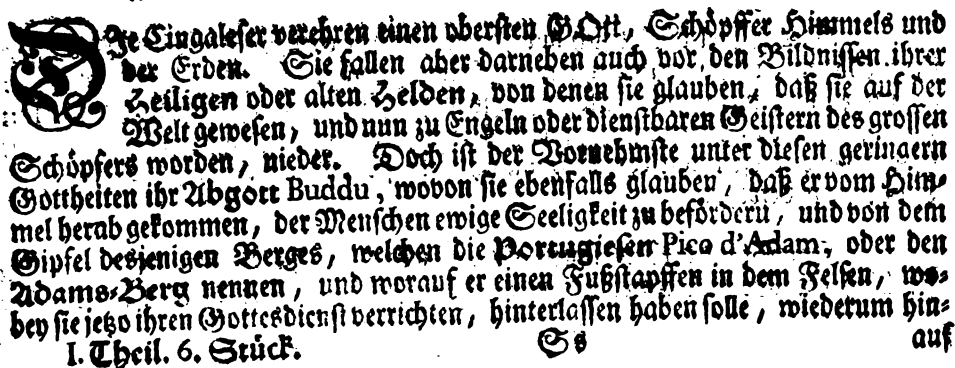 Die Cingaleser verehren einen obersten GOtt, Schöpffer Himmels und
der Erden. Sie fallen aber darneben auch vor den Bildnissen ihrer
Heiligen oder alten Helden, von denen sie glauben, daß sie auf der
Welt gewesen, und nun zu Engeln oder dienstbaren Geistern des grossen
Schöpfers worden, nieder. Doch ist der Vornehmste unter diesen geringern
Gottheiten ihr Abgott Buddu, wovon sie ebenfalls glauben, daß er vom Him-
mel herab gekommen, der Menschen ewige Seeligkeit zu befördern, und von dem
Gipfel desjenigen Berges, welchen die Portugiesen Pico d'Adam, oder den
Adams-Berg nennen, und worauf er einen Fußstapffen in dem Felsen, wo-
bey sie jetzo ihren Gottesdienst verrichten, hinterlassen haben solle, wiederum hin-
I. Theil. 6. Stück. Ss auf